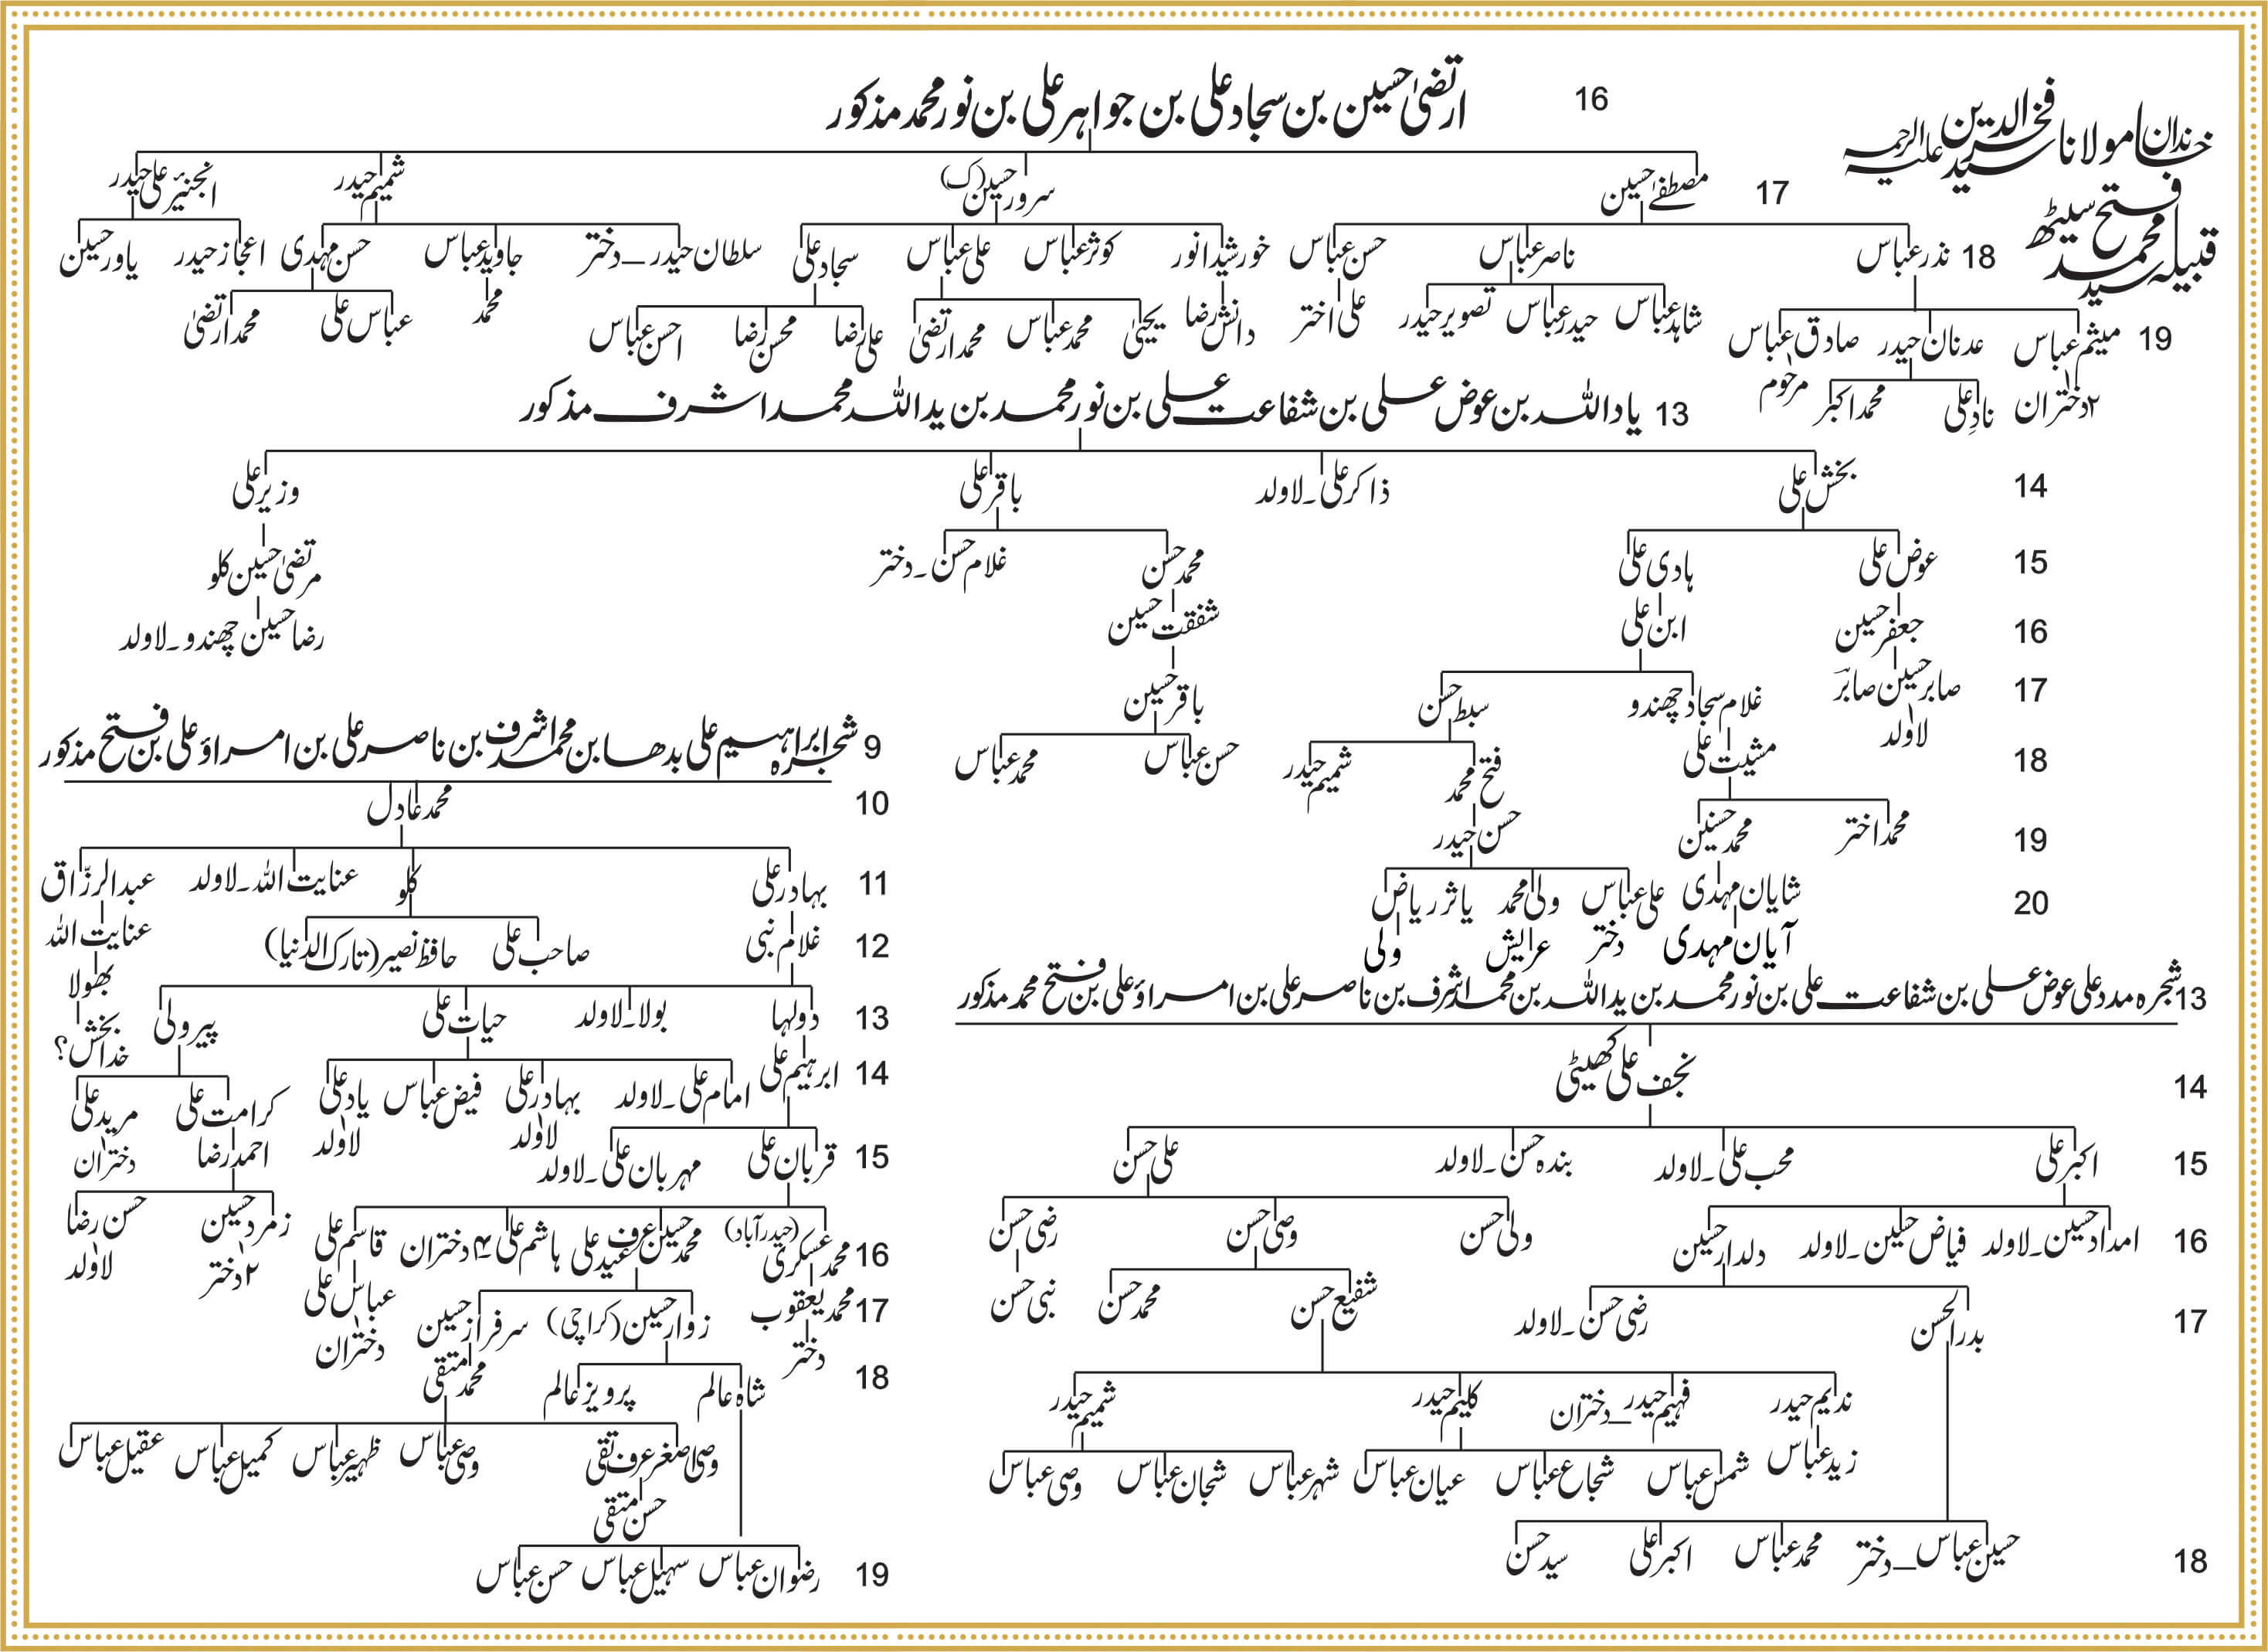 خاندان مولانا سید فخرالدین علیہ الرحمہ
قبیلہ سید محمد فتح سیٹھ
16 ارتضیٰ حسین بن سجاد علی بن جواہر علی بن نور محمد مذکور
17 مصطفےٰ حسین سرور حسین (ک) شمیم حیدر انجنیئر علی حیدر
18 نذر عباس ناصر عباس حسن عباس خورشید انور کوثر عباس علی عباس سجاد علی سلطان حیدر ــ دختر جاوید عباس حسن مہدی اعجاز حیدر یاور حسین
19 میثم عباس عدنان حیدر صادق عباس شاہد عباس حیدر عباس تصویر حیدر علی اختر دانش رضا یحییٰ محمد عباس محمد ارتضیٰ علی رضا محسن رضا احسن عباس محمد عباس علی محمد ارتضیٰ
۲ دختران نادِ علی محمد اکبر مرحوم
13 یاد اللہ بن عوض علی بن شفاعت علی بن نور محمد بن ید اللہ محمد اشرف مذکور
14 بخش علی ذاکر علی ۔ لاولد باقر علی وزیر علی
15 عوض علی ہادی علی محمد حسن غلام حسن ۔ دختر مرتضیٰ حسین کلو
16 جعفر حسین ابن علی شفقت حسین رضا حسین چھندو ۔ لاولد
17 صابر حسین صابر غلام سجاد چھندو سبط حسن باقر حسین
لاولد
18 مشیت علی فتح محمد شمیم حیدر حسن عباس محمد عباس
19 محمد اختر محمد حسنین حسن حیدر
20 شایان مہدی علی عباس ولی محمد یاثر ریاض
آیان مہدی دختر عرایش ولی
9 شجرہ ابراہیم علی بدھا بن محمد اشرف بن ناصر علی بن امراؤ علی بن فتح مذکور
10 محمد عادل
11 بہادر علی کلو عنایت اللہ ۔ لاولد عبدالرزّاق
12 غلام نبی صاحب علی حافظ نصیر (تارک الدنیا) عنایت اللہ
بھولا
13 دولہا بولا ۔ لاولد حیات علی پیر ولی بخش خداش؟
14 ابرہیم علی امام علی ۔ لاولد بہادر علی فیض عباس یاد علی کرامت علی مرید علی
لاولد لاولد
15 قربان علی مہربان علی ۔ لاولد احمد رضا دختران
16 محمد عسکری (حیدرآباد) محمد حسین عرف عیدعلی ہاشم علی ۴ دختران قاسم علی زمرد حسین حسن رضا
۲ دختر لاولد
17 محمد یعقوب زوار حسین (کراچی) سرفراز حسین عباس علی
دختر دختران
18 شاہ عالم پرویز عالم محمد متقی
وصی اصغر عرف تقی وصی عباس ظہیر عباس کمیل عباس عقیل عباس
حسن متقی
19 رضوان عباس سہیل عباس حسن عباس
13 شجرہ مدد علی عوض علی بن شفاعت علی بن نور محمد بن ید اللہ بن محمد اشرف بن ناصر علی بن امراؤ علی بن فتح محمد مذکور
14 نجف علی کھیٹی
15 اکبر علی محب علی ۔ لاولد بندہ حسن ۔ لاولد علی حسن
16 امداد حسین ۔ لاولد فیاض حسین ۔ لاولد دلدار حسین ولی حسن وصی حسن رضی حسن
17 بدرالحسن رضی حسن ۔ لاولد شفیع حسن محمد حسن نبی حسن
ندیم حیدر فہیم حیدر ــ دختران کلیم حیدر شمیم حیدر
زید عباس شمس عباس شجاع عباس عیان عباس شہر عباس شجان عباس وصی عباس
18 حسین عباس ــ دختر محمد عباس اکبر علی سید حسن